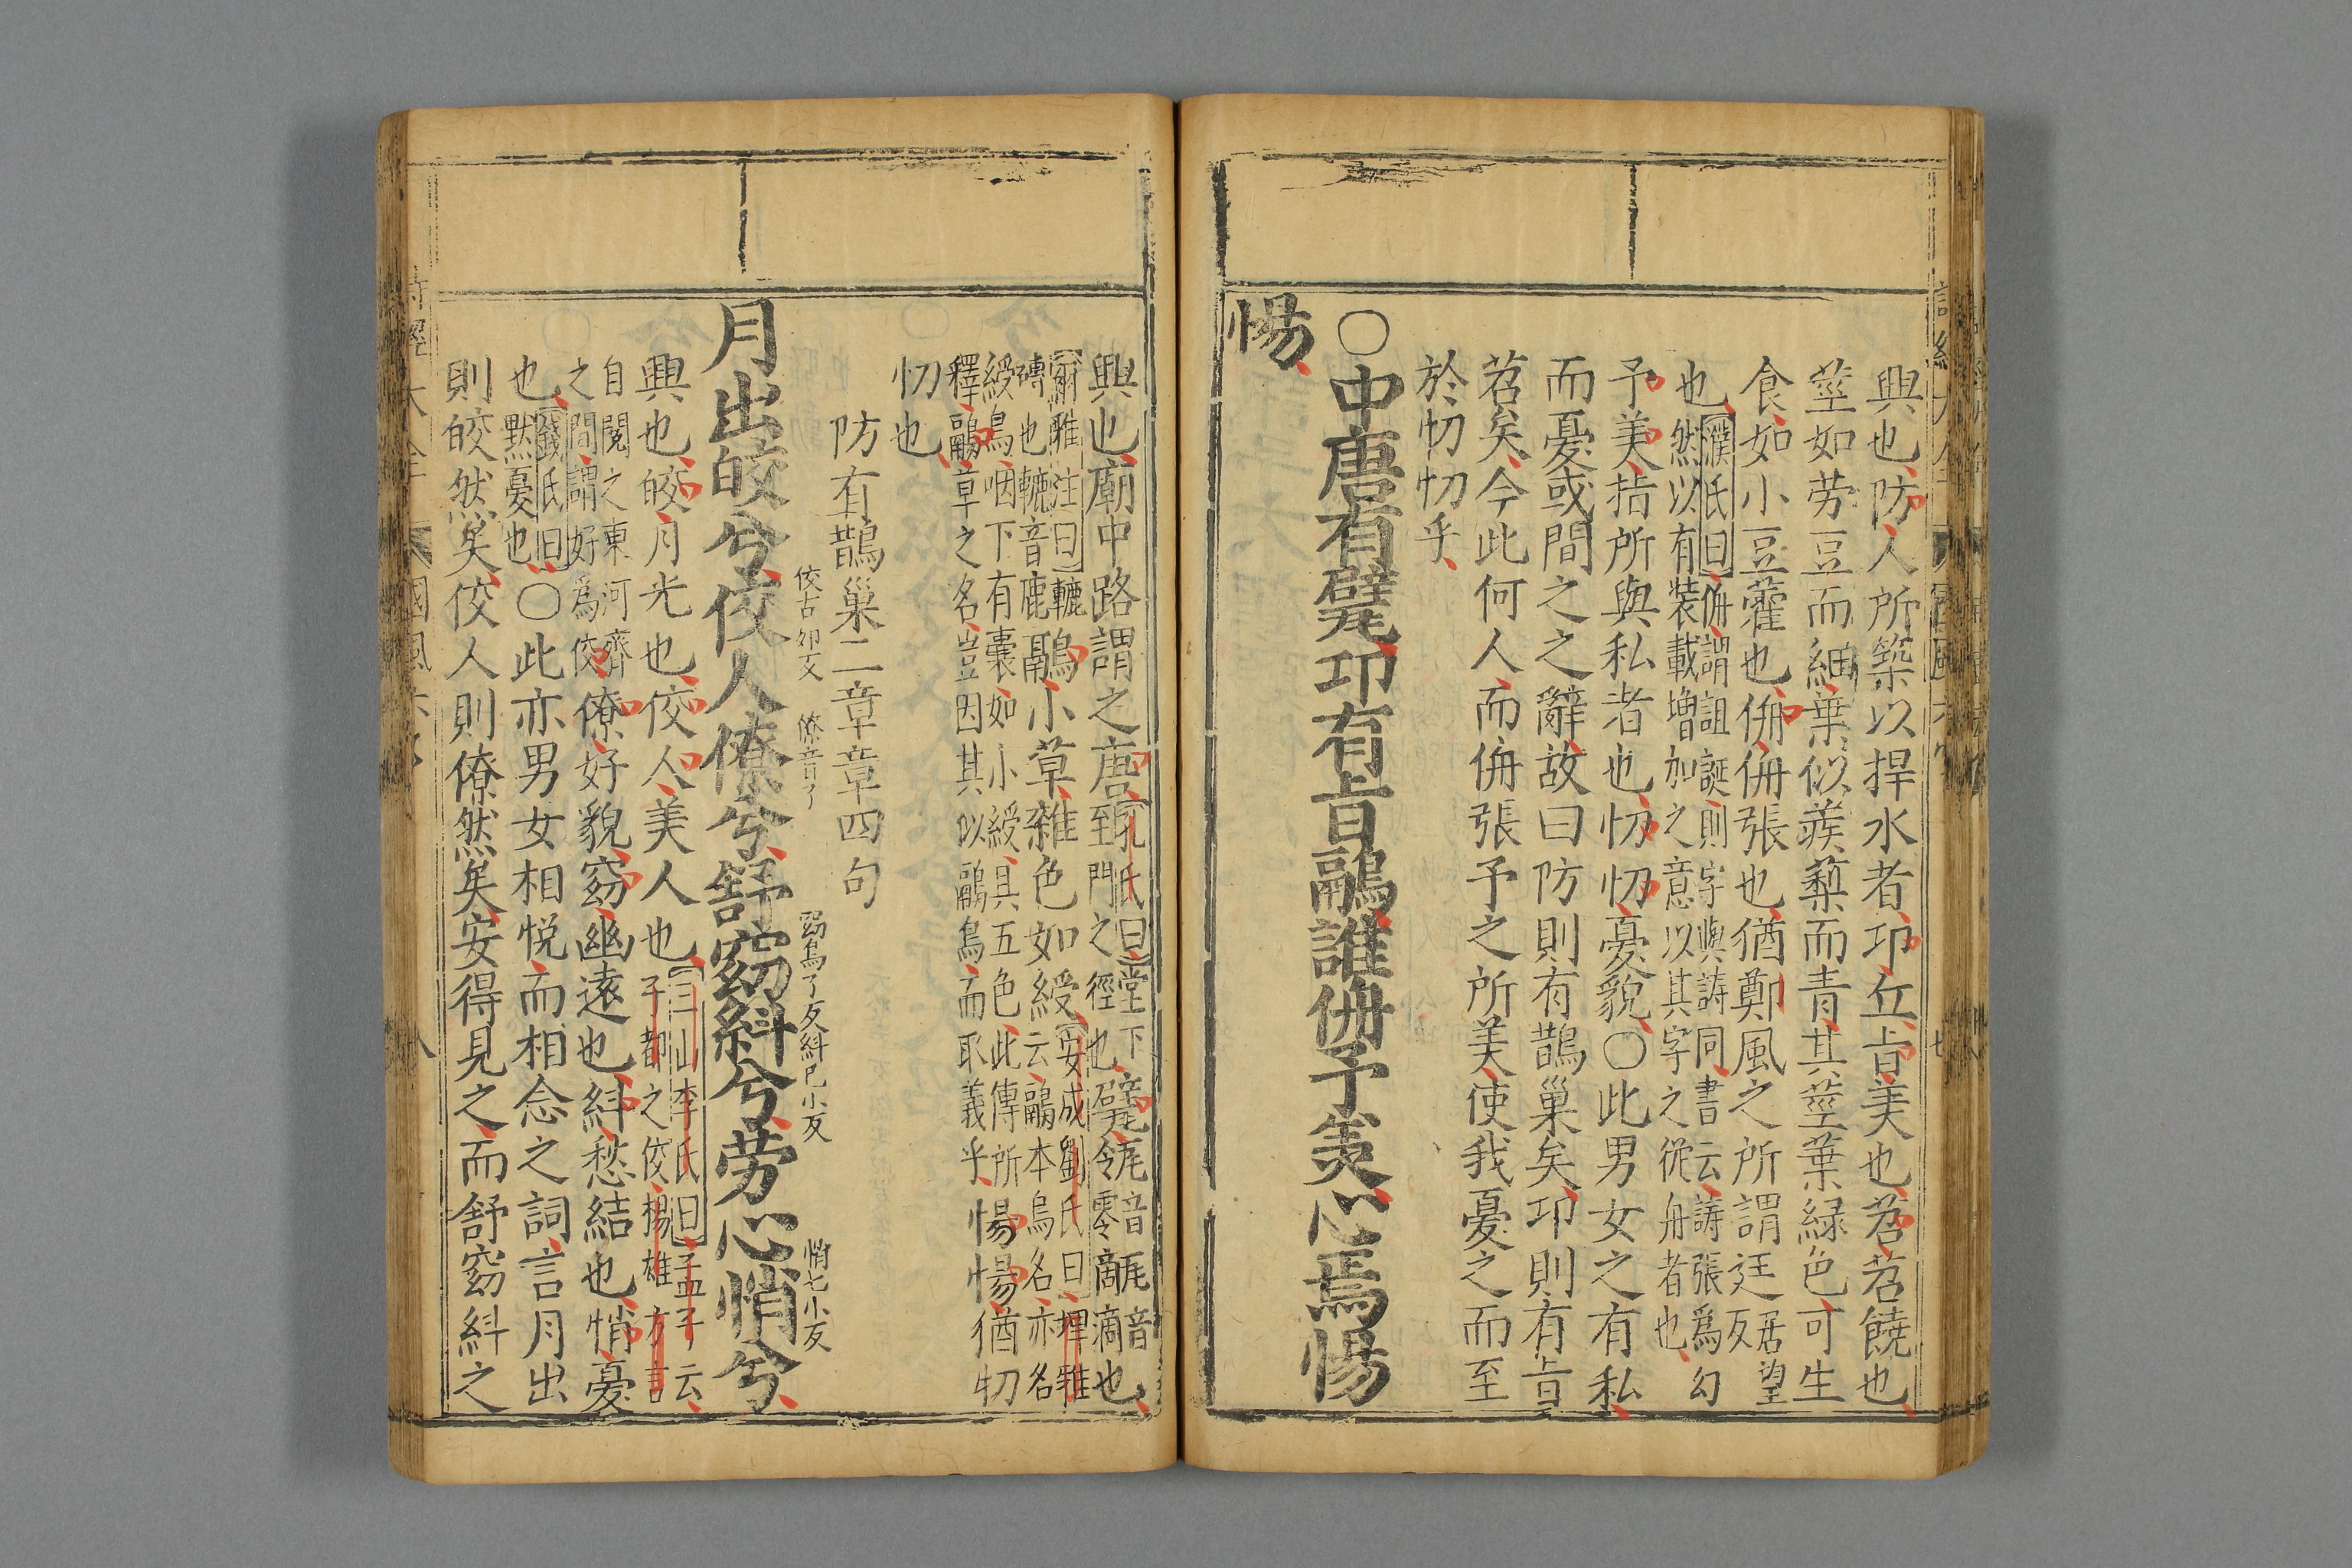 興也防人所築以捍水者卭丘㫖美也苕苕饒也
莖如勞豆而細葉似蒺蔾而青其莖葉緑色可生
食如小豆藿也侜侜張也猶鄭風之所謂迋居望反
也濮氏曰侜謂詛誕則字與譸同書云譸張爲幻
然以有装載增加之意以其字之從舟者也
予美指所與私者也忉忉憂貌○此男女之有私
而憂或間之之辭故曰防則有鵲巢矣卭則有㫖
苕矣今此何人而侜張予之所美使我憂之而至
於忉忉乎
○中唐有甓卭有㫖鷊誰侜予美心焉惕
惕
興也廟中路謂之唐孔氏曰堂下
至門之徑也甓瓴甋也瓴音零甋音滴
爾雅注曰甋
甎也甎音鹿鷊小草雜色如綬安成劉氏曰埤雅
云鷊本鳥名亦名
綬鳥咽下有囊如小綬具五色此傳所
釋鷊草之名豈因其似鷊鳥而取義乎惕惕猶忉
忉也
防有鵲巢二章章四句
佼古卯反 僚音了 窈烏了反糾已小反 悄七小反
月出皎兮佼人僚兮舒窈糾兮勞心悄兮
興也皎月光也佼人美人也三山李氏曰孟子云
子都之佼楊雄方言
自關之東河濟
之間謂好爲佼僚好貌窈幽遠也糾愁結也悄憂
也錢氏曰
默憂也○此亦男女相悦而相念之詞言月出
則皎然矣佼人則僚然矣安得見之而舒窈糾之